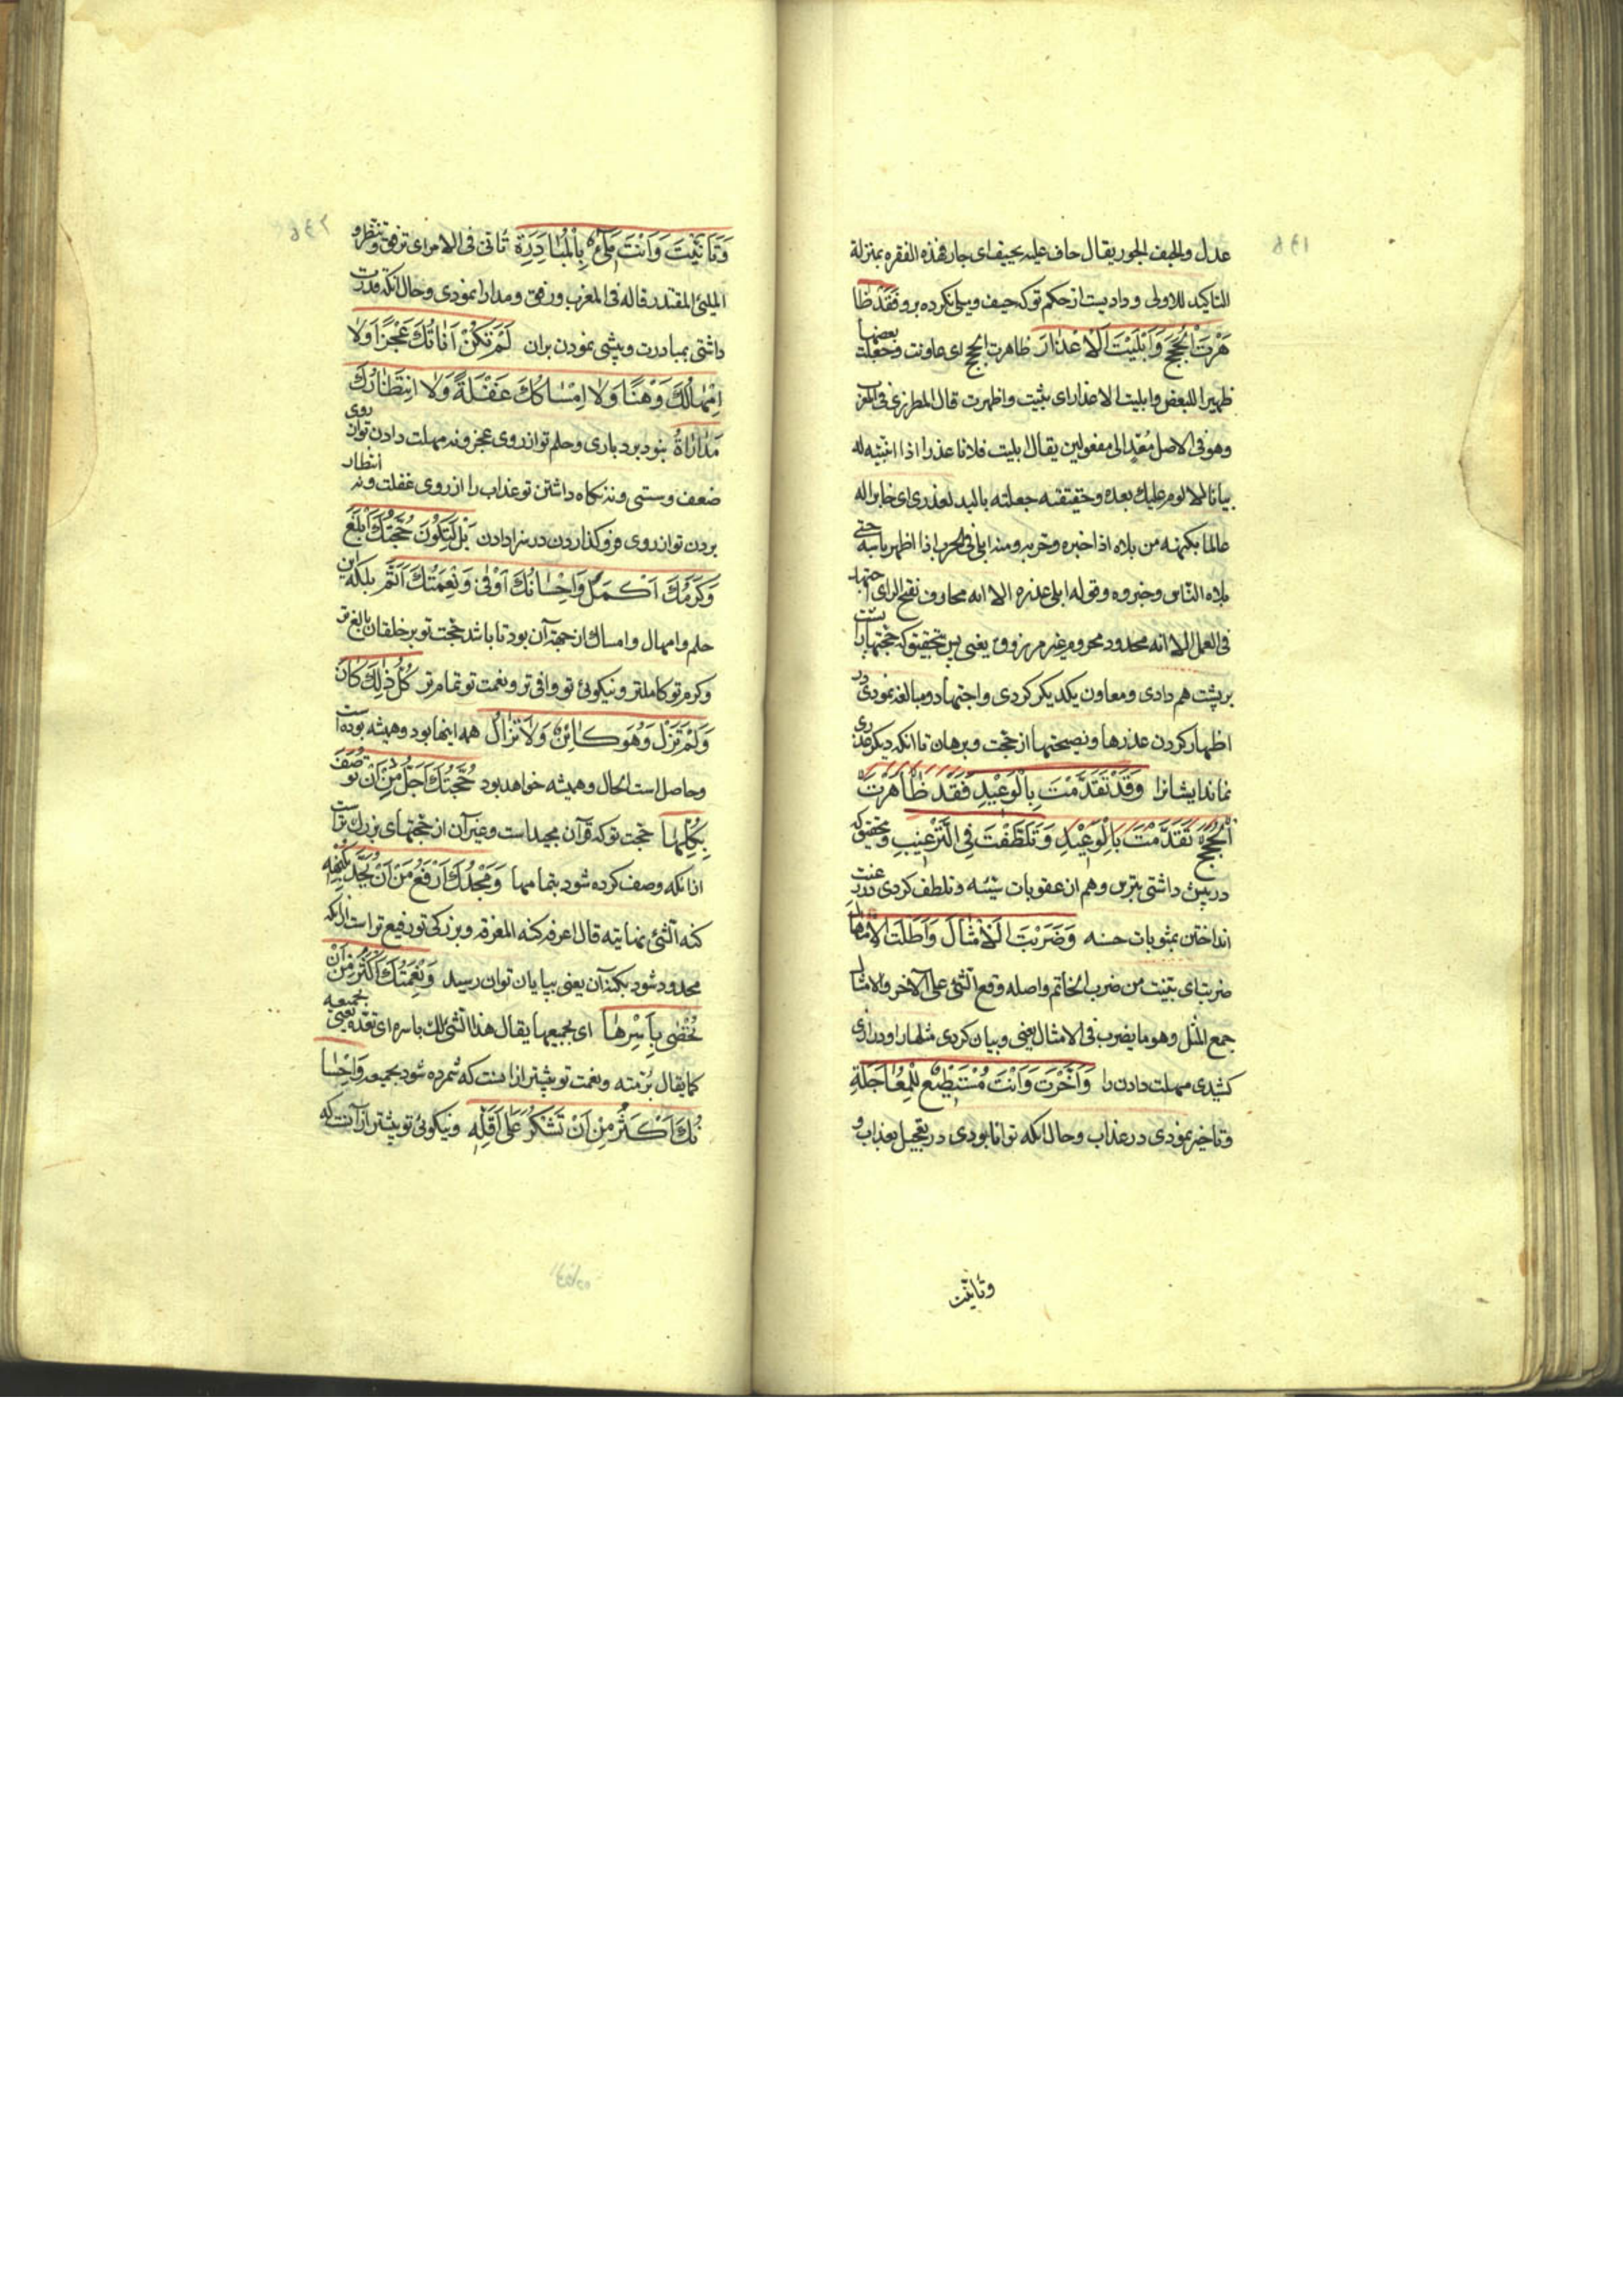 عدل والحیف الجور یقال حاف علیه یحیف ای جار فهذه الفقره بمنزلة
التاکید للاولی و دادیست از حکم تو که حیف و میلی نکرده برو فَقَدْ ظَا
هَرْتَ الْحُجَجَ وَاَبْلَیْتَ الْاَعْذَارَ ظاهرت الحجج ای عاونت وجعلت بعضها
ظهیرا للبعض وابلیت الاعذار ای بثیت واظهرت قال المطرزی فی المغرب
وهو فی الاصل مُعَدٍّ الی مفعولین یقال ابلیت فلانا عذرا اذا ابنیته له
بیانا لا لوم علیک بعده وحقیقته جعلته بالیه لعذری ای خابرا له
عالما بکنهه من بلاه اذا اخبره وجربه ومنه ابلی فی الحرب اذا اظهر باسه حتی
بلاه الناس وخبروه وقوله ابلی عذره الا انه محارف نقیح الرای اجتهد
فی العمل الا انه محدود محروم غیر مرزوق یعنی پس بتحقیق که حجتها را پشت
بر پشت هم دادی و معاون یکدیکر کردی و اجتهاد و مبالغه نمودی در
اظهار کردن عذرها و نصیحتها از حجت و برهان تا آنکه دیکر عذری
نماند ایشانرا وَقَدْ تَقَدَّمْتَ بِالْوَعِیْدِ فَقَدْ ظَاهَرْتَ
الْحُجَجَ تَقَدَّمْتَ بِالْوَعِیْدِ وَتَلَطَّفْتَ فِی التَّرْغِیْبِ و بتحقیق که
در پیش داشتی بترس و هم از عقوبات سیئه و تلطف کردی در رغبت
انداختن بمثوبات حسنه وَضَرَبْتَ الْاَمْثَالَ وَاَطَلْتَ الْاِمْهَالَ
ضربت ای بینت من ضرب الخاتم واصله وقع الشئ علی الآخر والامثال
جمع المثل وهو ما یضرب فی الامثال یعنی و بیان کردی مثلها را و درازی
کشیدی مهلت دادن را وَاَخَّرْتَ وَاَنْتَ مُسْتَطِیْعٌ لِلْمُعَاجَلَةِ
و تاخیر نمودی در عذاب و حال آنکه توانا بودی در تعجیل بعذاب و
وتانیت
وَتَاَنَّیْتَ وَاَنْتَ مَلِیْءٌ بِالْمُبَادَرَةِ تأنّی فی الامر ای ترفق وتنظر و
الملیئ المقتدر قاله فی المغرب و رفق و مدارا نمودی و حال آنکه قدرت
داشتی بمبادرت و پیشی نمودن بران لَمْ تَکُنْ اَنَاتُکَ عَجْزًا وَلَا
اِمْهَالُکَ وَهْنًا وَلَا اِمْسَاکُکَ غَفْلَةً وَلَا انْتِظَارُکَ
مُدَارَاةً نبود بردباری و حلم تو از روی عجز و نه مهلت دادن تو از روی
ضعف و سستی و نه نکاه داشتن تو عذاب را از روی غفلت و نه انتظار
بردن تو از روی فروکذاردن در سزا دادن بَلْ لِتَکُوْنَ حُجَّتُکَ اَبْلَغَ
وَکَرَمُکَ اَکْمَلَ وَاِحْسَانُکَ اَوْفٰی وَنِعْمَتُکَ اَتَمَّ بلکه این
حلم و امهال و امساک از جهة آن بود تا باشد حجت تو بر خلقان بالغ تر
و کرم تو کاملتر و نیکوئی تو وافی تر و نعمت تو تمام تر کُلُّ ذٰلِکَ کَانَ
وَلَمْ تَزَلْ وَهُوَ کَائِنٌ وَلَا تَزَالُ همه اینها بود و همیشه بوده است
و حاصل است الحال و همیشه خواهد بود حُجَّتُکَ اَجَلُّ مِنْ اَنْ تُوْصَفَ
بِکُلِّهَا حجت تو که قرآن مجید است و غیر آن از حجتهای بزرک تر است
از آنکه وصف کرده شود بتمامها وَمَجْدُکَ اَرْفَعُ مِنْ اَنْ یُحَدَّ بِکُنْهِهِ
کنه الشئ نهایته قال اعرفه کنه المعرفة و بزرکی تو رفیع تر است از آنکه
محدود شود بکنه آن یعنی بپایان توان رسید وَنِعْمَتُکَ اَکْثَرُ مِنْ اَنْ
تُحْصٰی بِاَسْرِهَا ای بجمیعها یقال هذا الشئ لک باسره ای بقده یعنی بجمیعه
کما یقال برمته و نعمت تو بیشتر از انست که شمرده شود بجمیعه وَاِحْسَا
نُکَ اَکْثَرُ مِنْ اَنْ تُشْکَرَ عَلٰی اَقَلِّهِ و نیکوئی تو بیشتر از آنست که